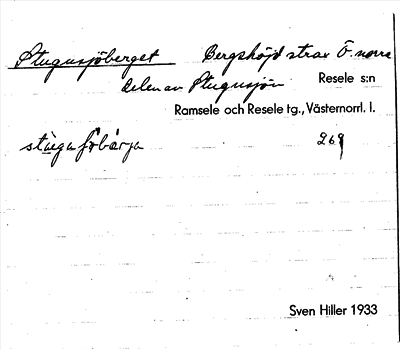 Stugusjöberget Bergshöjd strax Ö. norra
delen av Stugusjön Resele s:n
Ramsele och Resele tg., Västernorrl. l.
269
Sven Hiller 1933